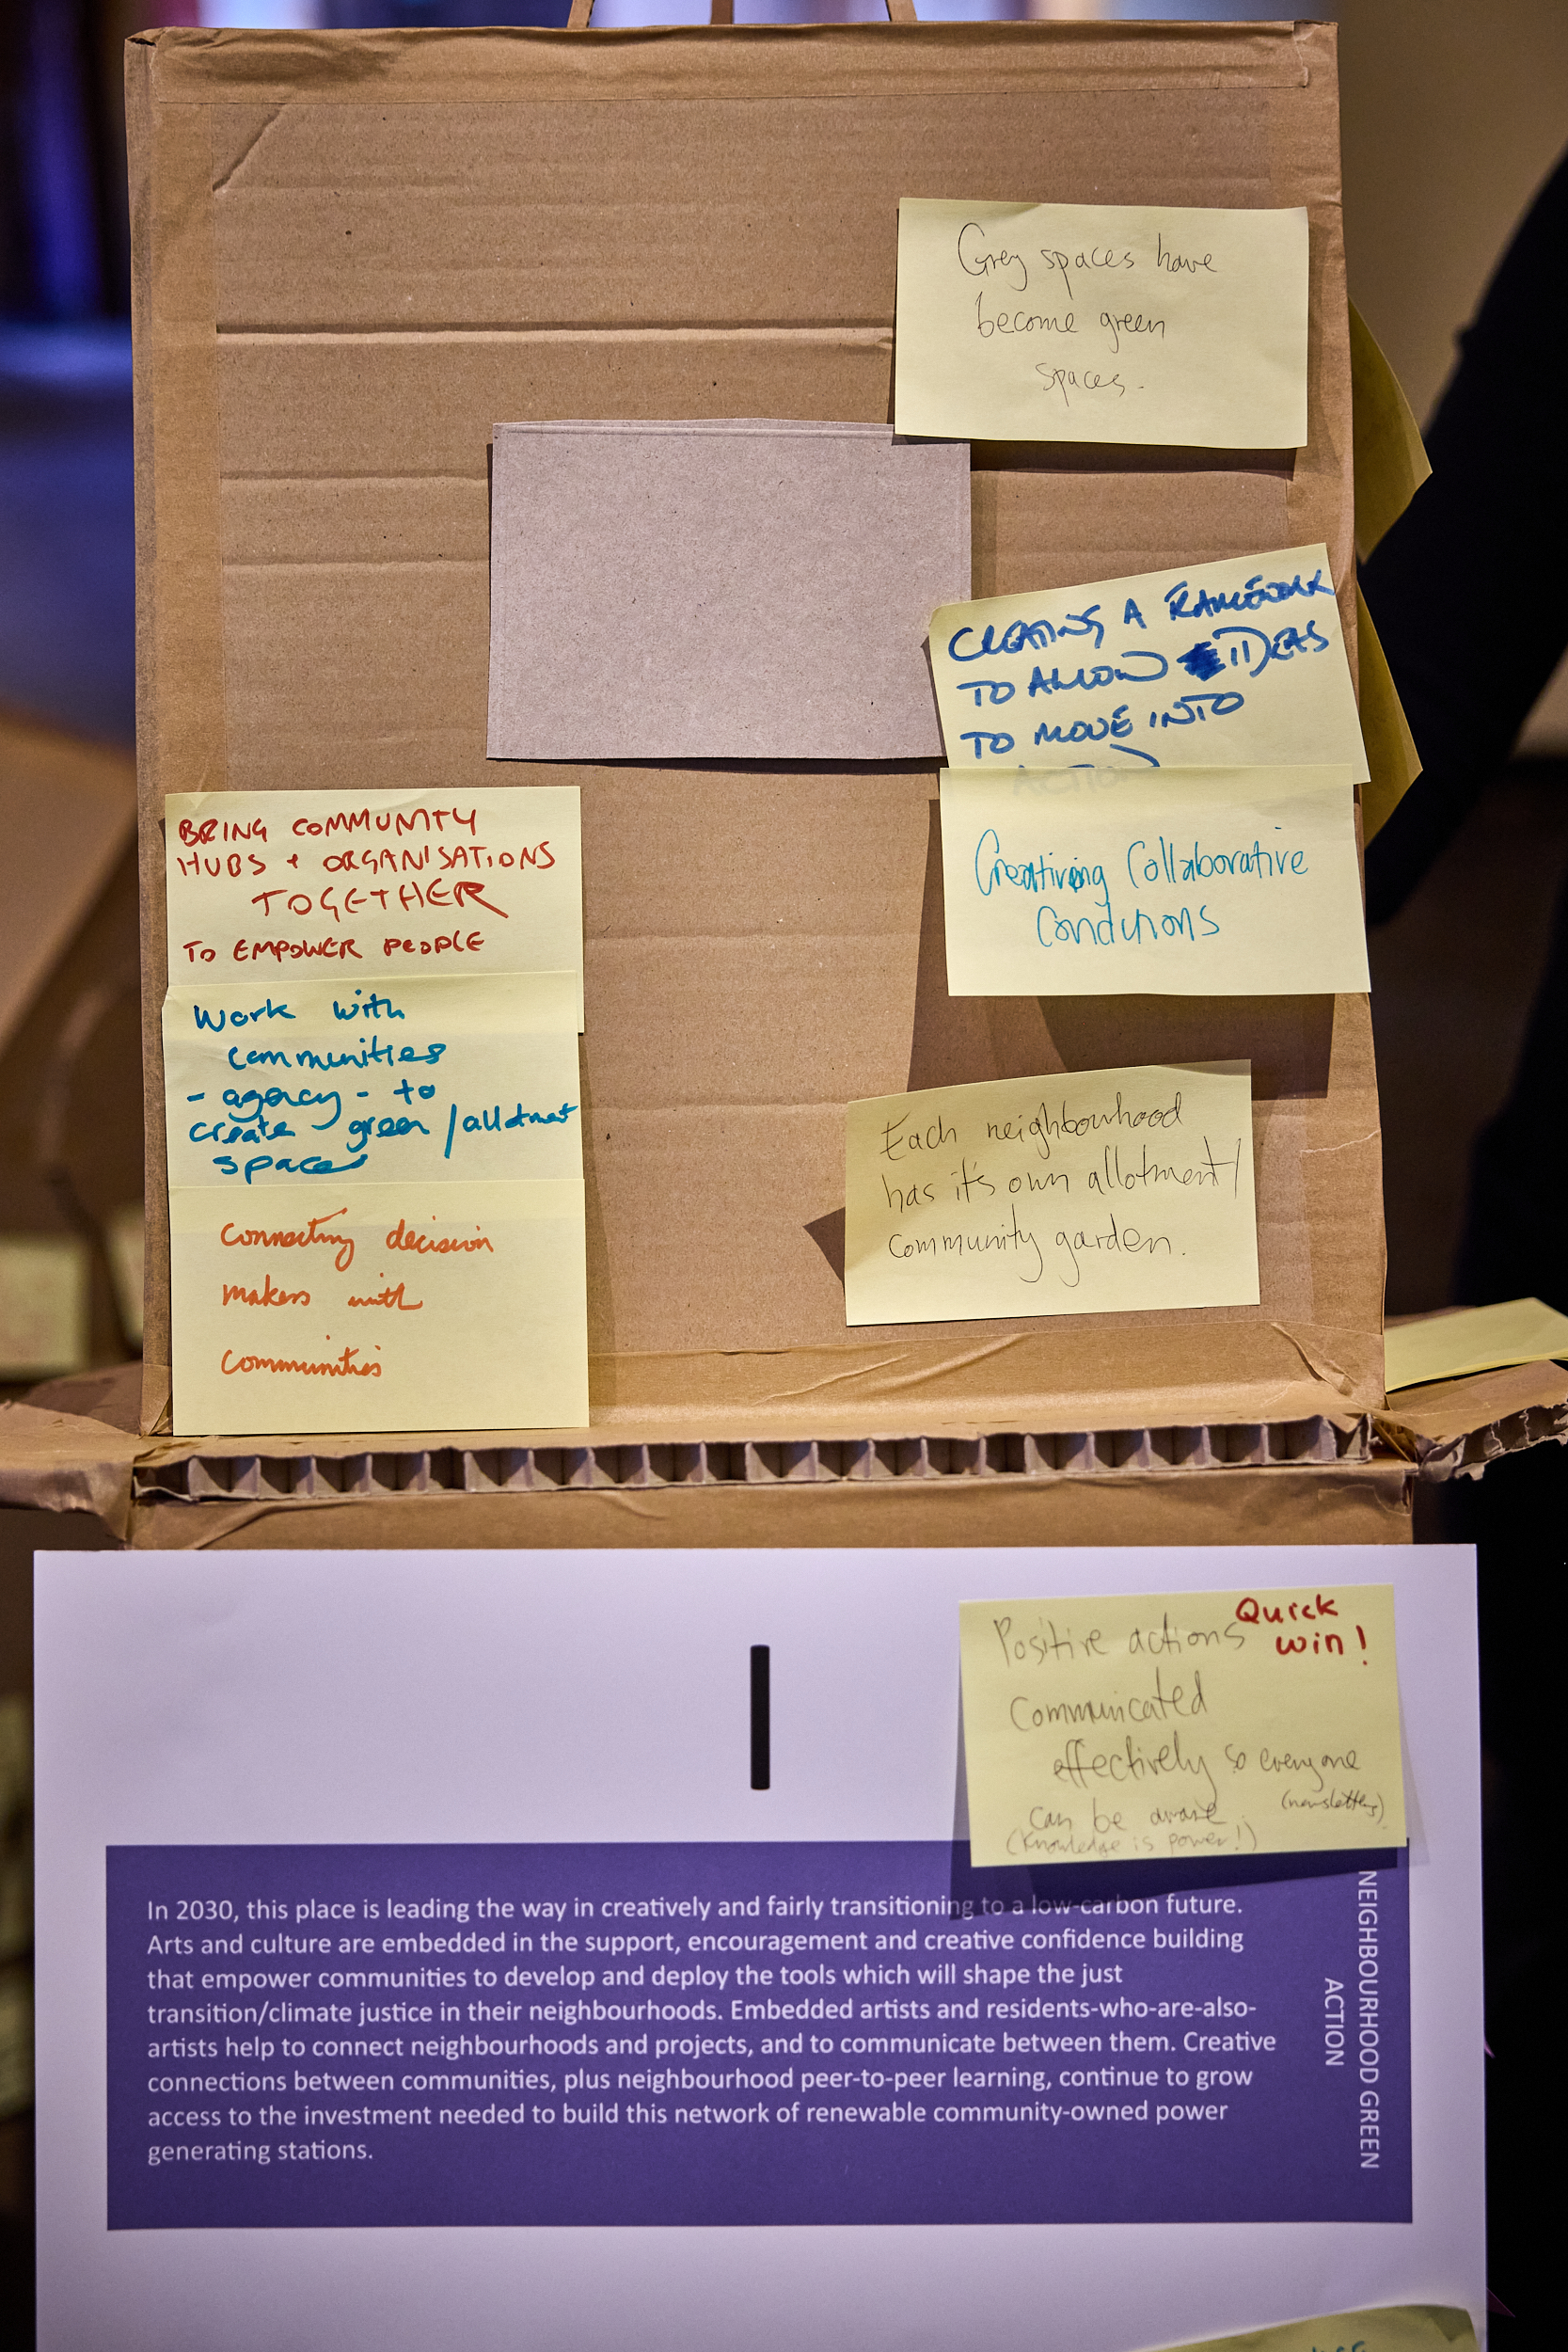 Grey spaces have
become green
spaces.
CREATING A FRAMEWORK
TO ALLOW IDEAS
TO MOVE INTO
ACTION
Creativing Collaborative
Conditions
BRING COMMUNITY
HUBS + ORGANISATIONS
TOGETHER
TO EMPOWER PEOPLE
Work with
communities
- agency - to
create green / allotment
spaces
Connecting decision
makers with
communities
Each neighbourhood
has it's own allotment/
community garden.
Quick
win!
Positive actions
Communicated
effectively so everyone
can be aware (newsletters)
(knowledge is power!)
In 2030, this place is leading the way in creatively and fairly transitioning to a low-carbon future.
Arts and culture are embedded in the support, encouragement and creative confidence building
that empower communities to develop and deploy the tools which will shape the just
transition/climate justice in their neighbourhoods. Embedded artists and residents-who-are-also-
artists help to connect neighbourhoods and projects, and to communicate between them. Creative
connections between communities, plus neighbourhood peer-to-peer learning, continue to grow
access to the investment needed to build this network of renewable community-owned power
generating stations.
NEIGHBOURHOOD GREEN
ACTION